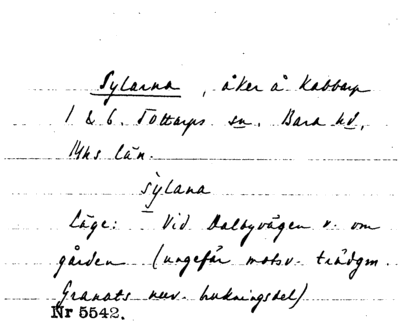 Sylarna, åker å Kabbarp
1 & 6. Tottarps sn. Bara hd,
Mhs län.
sylana
Läge: Vid Dalbyvägen v. om
gården (ungefär motsv. trädgm.
Granats nuv. brukningsdel)
Nr 5542.